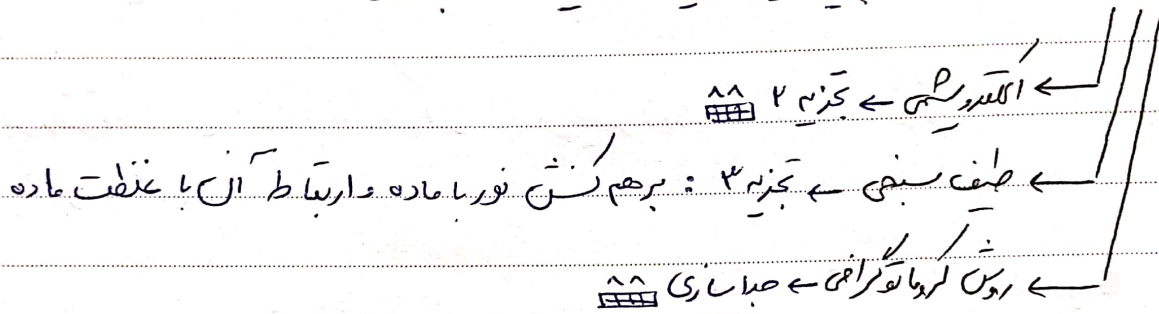 ← الکتروشیمی ← تجزیه ۲
← طیف سنجی ← تجزیه ۳ : برهم کنش نور با ماده و ارتباط آن با غلظت ماده
← روش کروماتوگرافی ← جداسازی